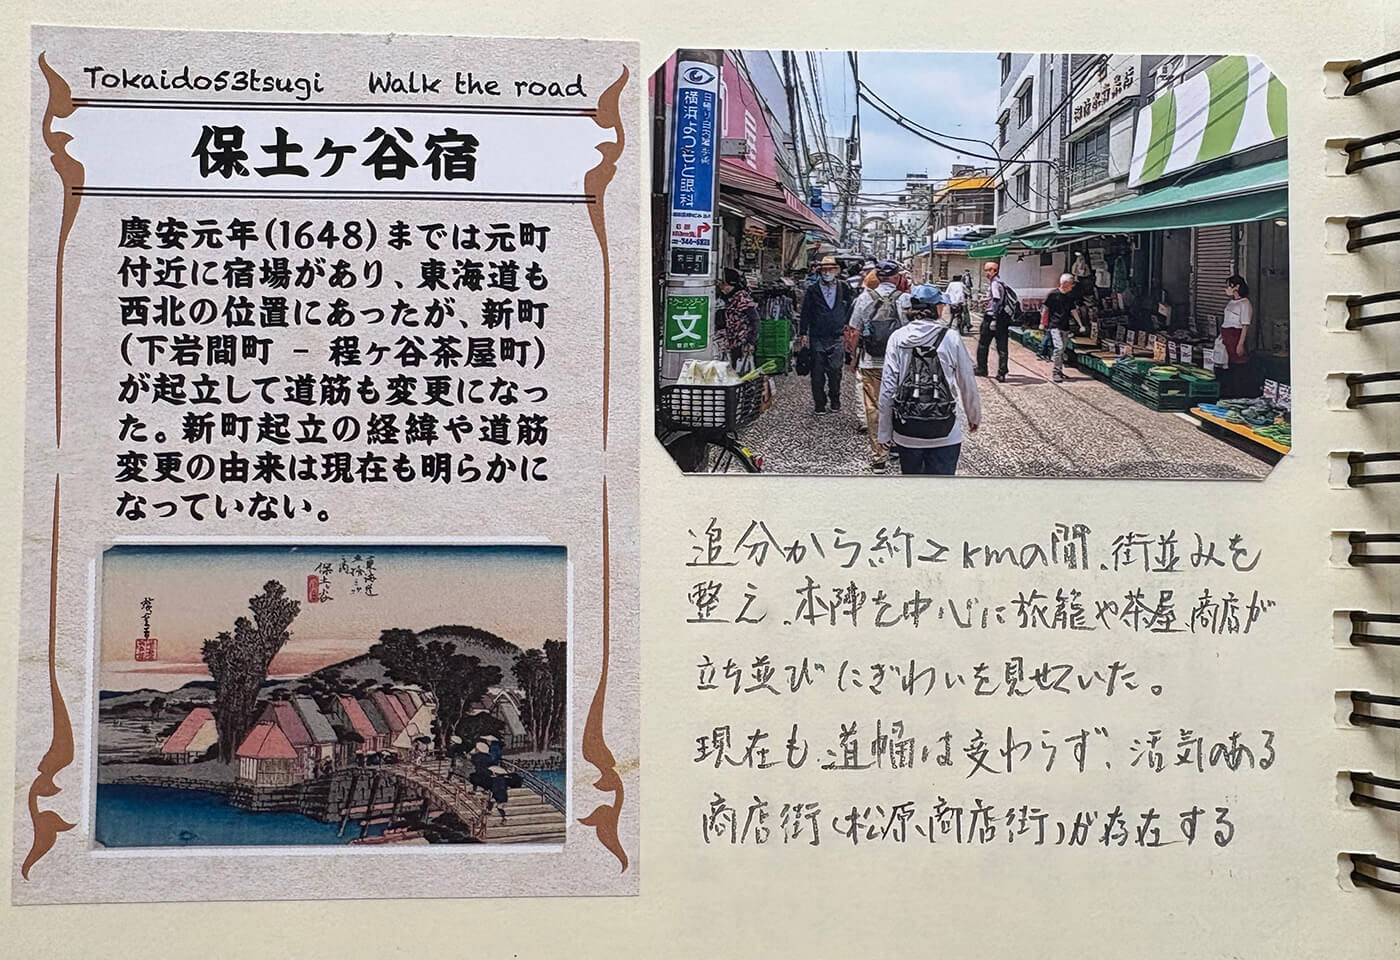 Tokaido53tsugi Walk the road
保土ヶ谷宿
慶安元年(1648)までは元町
付近に宿場があり、東海道も
西北の位置にあったが、新町
(下岩間町 - 程ヶ谷茶屋町)
が起立して道筋も変更になっ
た。新町起立の経緯や道筋
変更の由来は現在も明らかに
なっていない。
東海道
五拾三次
之内
保土ヶ谷
廣重画
横浜まつもと眼科
文
追分から約2kmの間、街並みを
整え、本陣を中心に旅籠や茶屋、商店が
立ち並びにぎわいを見せていた。
現在も道幅は変わらず、活気のある
商店街(松原商店街)が存在する